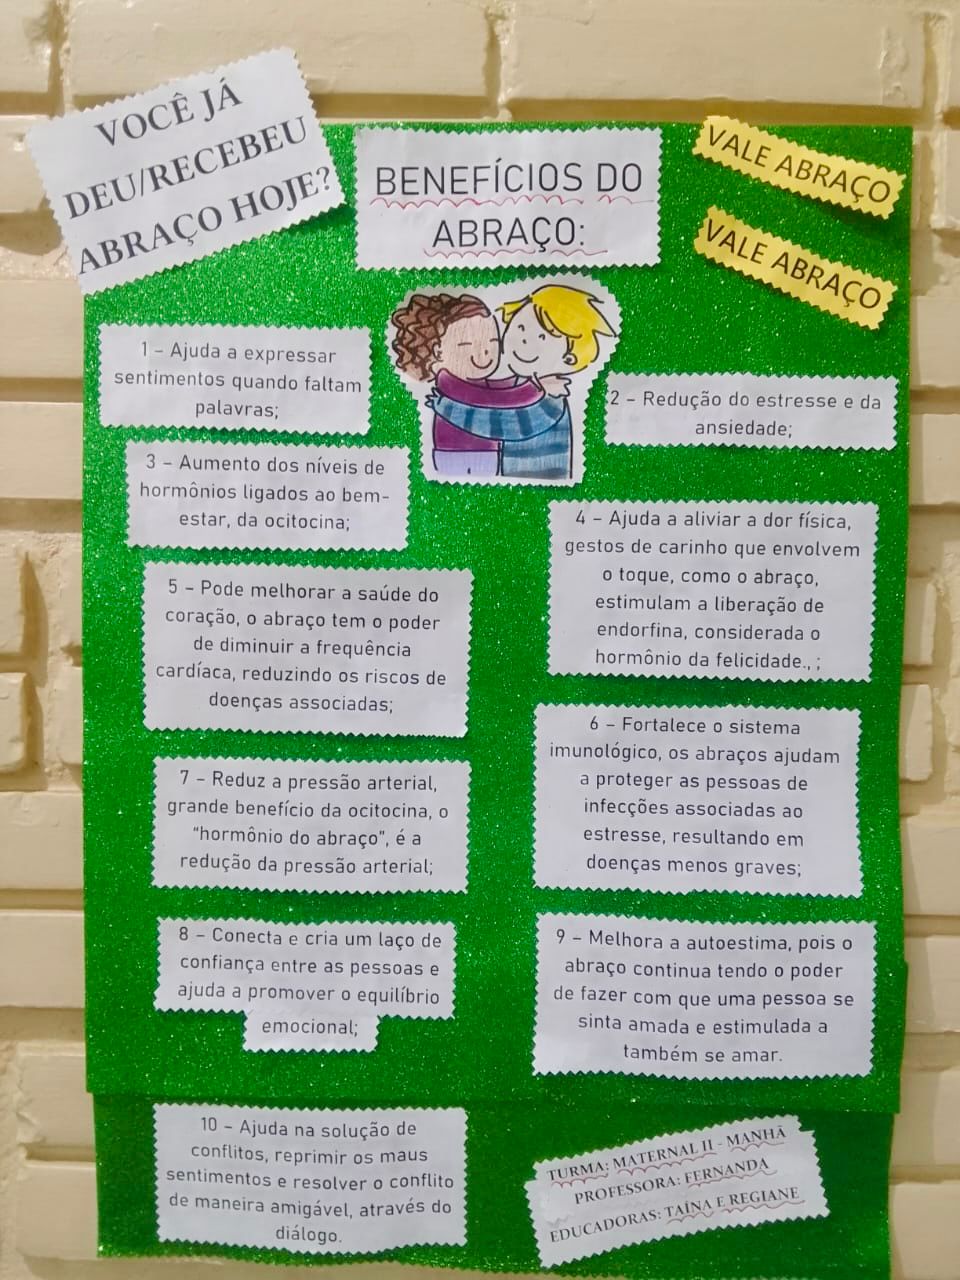 VOCÊ JÁ
DEU/RECEBEU
ABRAÇO HOJE?
BENEFÍCIOS DO
ABRAÇO:
VALE ABRAÇO
VALE ABRAÇO
1 – Ajuda a expressar
sentimentos quando faltam
palavras;
2 – Redução do estresse e da
ansiedade;
3 – Aumento dos níveis de
hormônios ligados ao bem-
estar, da ocitocina;
4 – Ajuda a aliviar a dor física,
gestos de carinho que envolvem
o toque, como o abraço,
estimulam a liberação de
endorfina, considerada o
hormônio da felicidade., ;
5 – Pode melhorar a saúde do
coração, o abraço tem o poder
de diminuir a frequência
cardíaca, reduzindo os riscos de
doenças associadas;
6 – Fortalece o sistema
imunológico, os abraços ajudam
a proteger as pessoas de
infecções associadas ao
estresse, resultando em
doenças menos graves;
7 – Reduz a pressão arterial,
grande benefício da ocitocina, o
“hormônio do abraço”, é a
redução da pressão arterial;
8 – Conecta e cria um laço de
confiança entre as pessoas e
ajuda a promover o equilíbrio
emocional;
9 – Melhora a autoestima, pois o
abraço continua tendo o poder
de fazer com que uma pessoa se
sinta amada e estimulada a
também se amar.
10 – Ajuda na solução de
conflitos, reprimir os maus
sentimentos e resolver o conflito
de maneira amigável, através do
diálogo.
TURMA: MATERNAL II - MANHÃ
PROFESSORA: FERNANDA
EDUCADORAS: TAÍNA E REGIANE